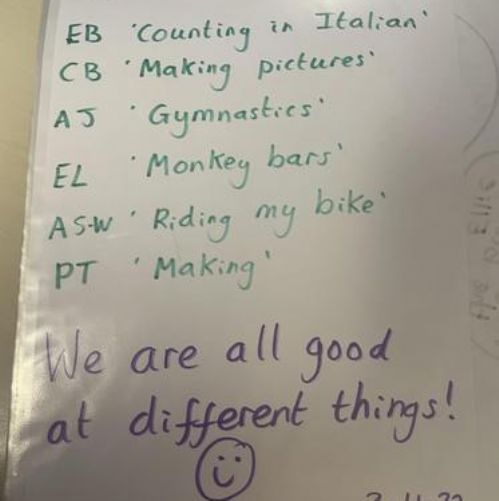 EB 'Counting in Italian'
CB 'Making pictures'
AJ 'Gymnastics'
EL 'Monkey bars'
AS-W 'Riding my bike'
PT 'Making'
We are all good
at different things!